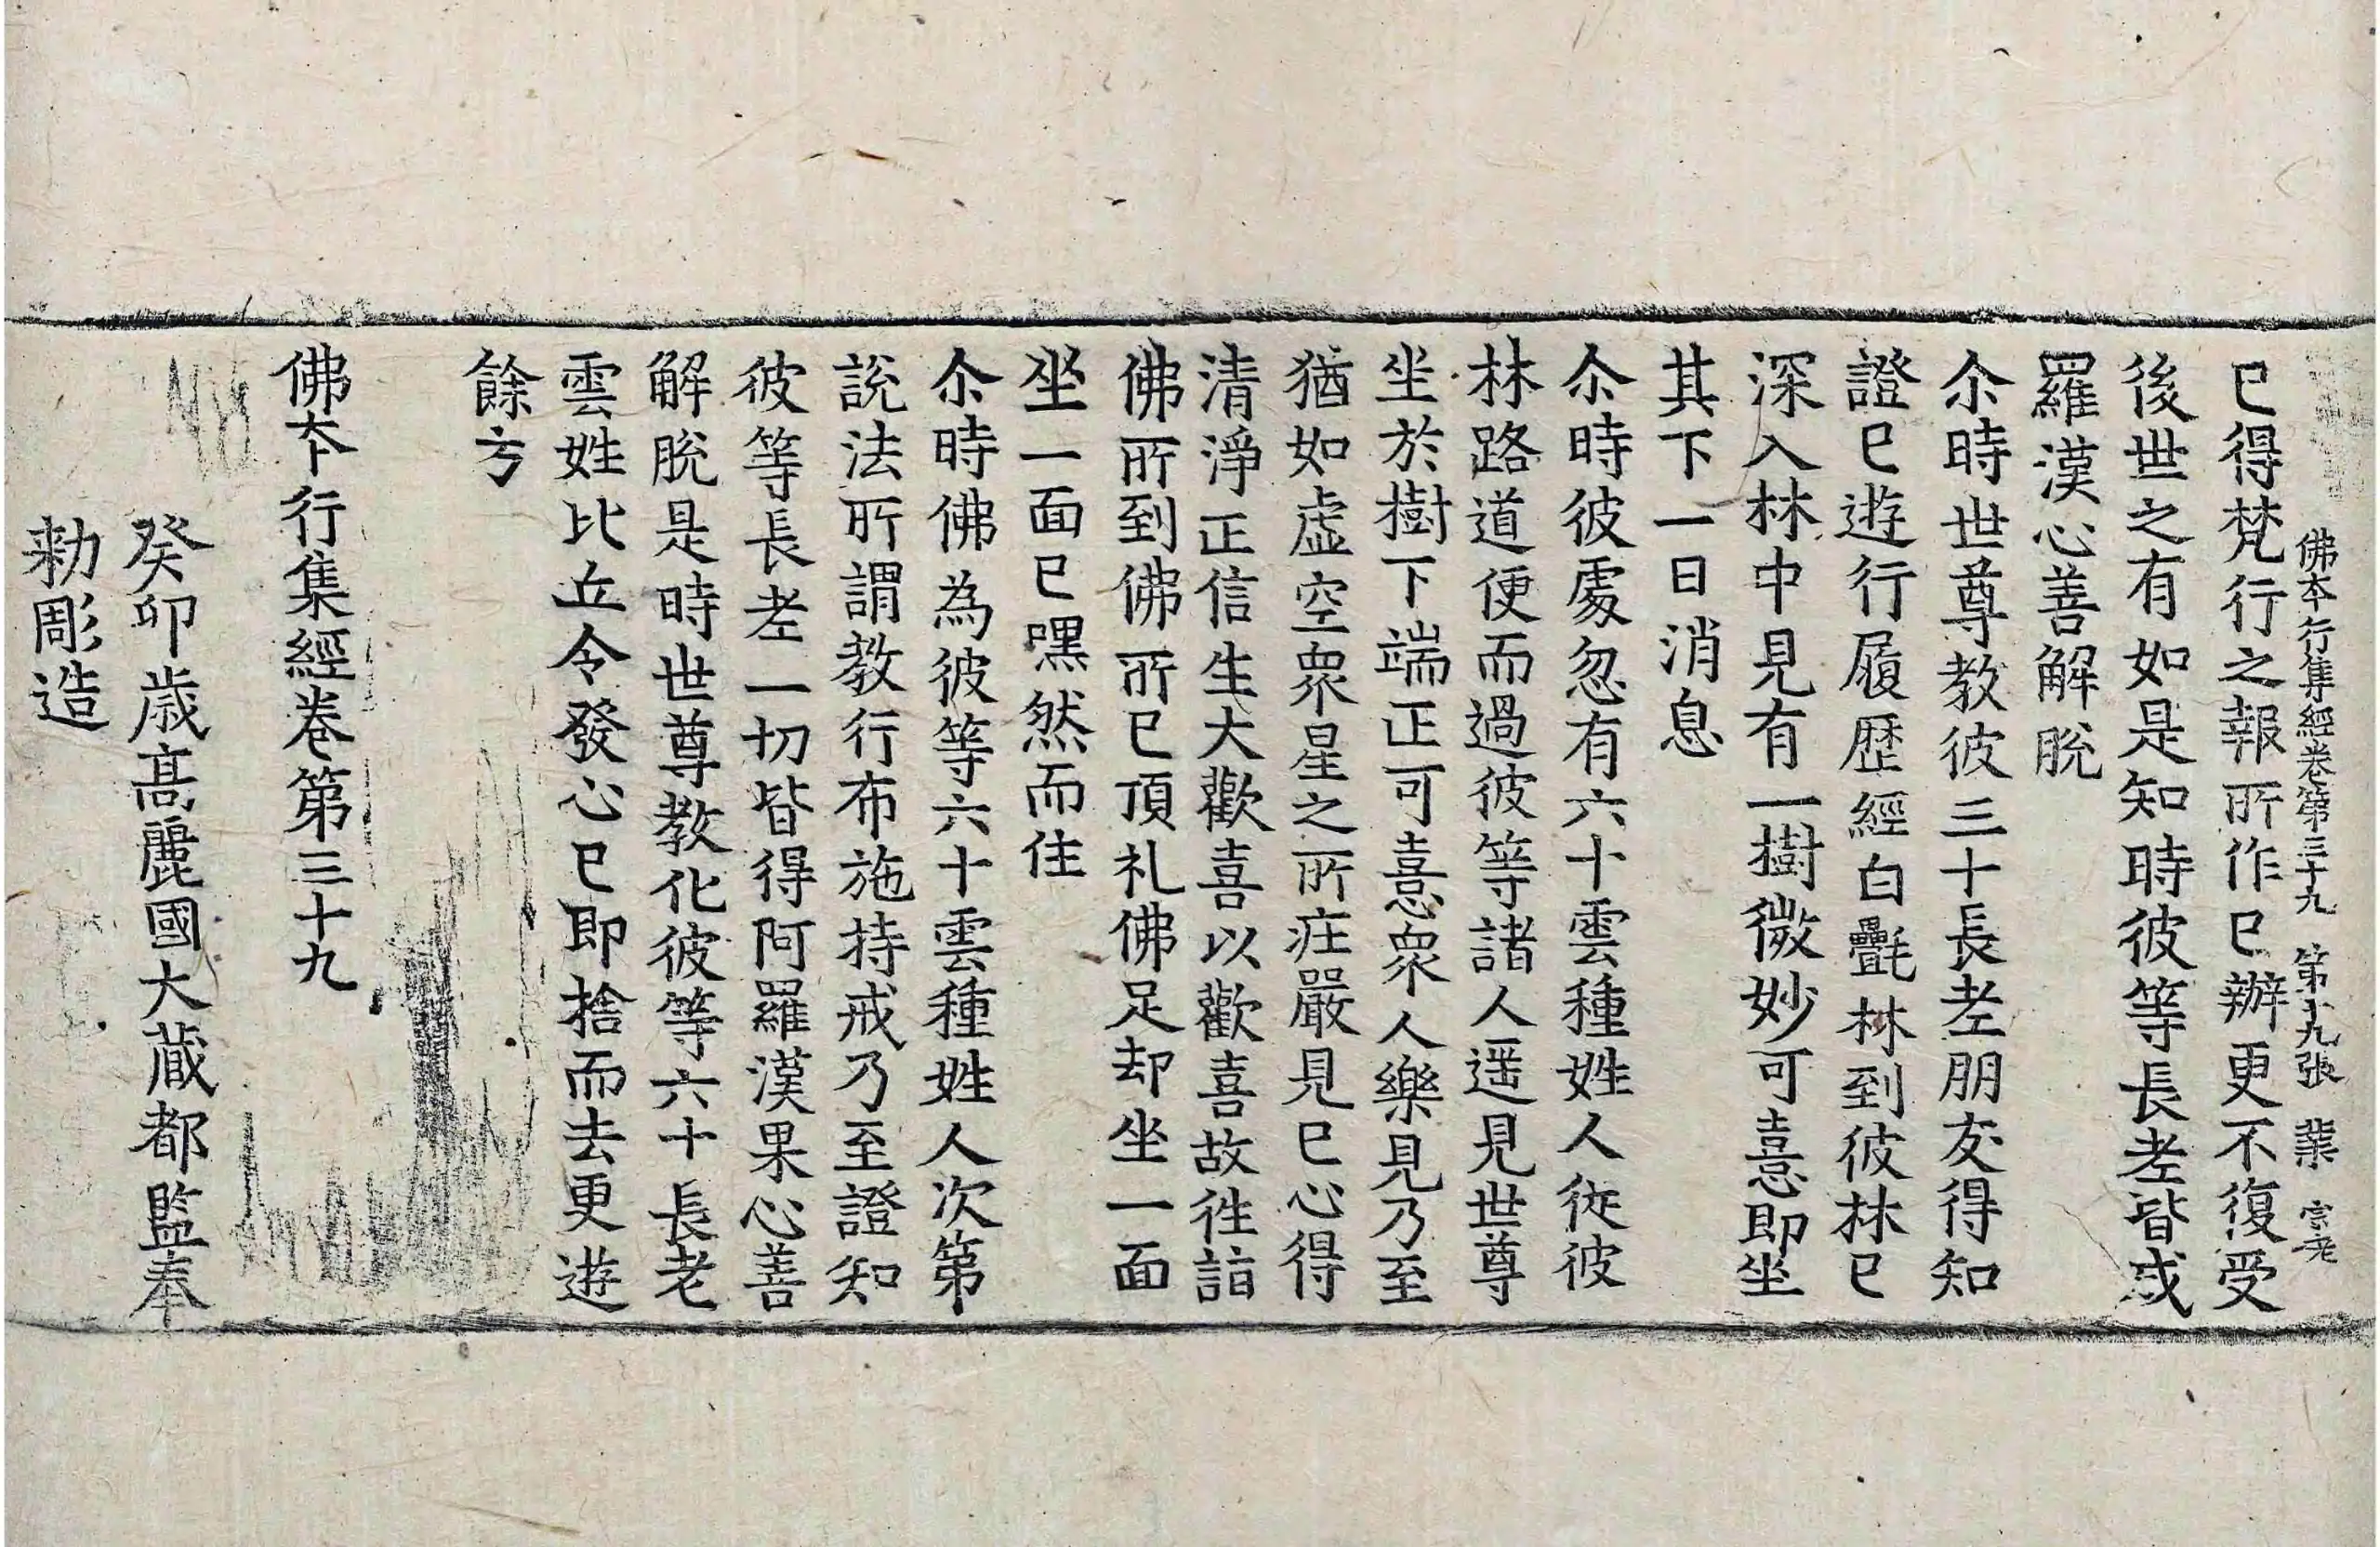 佛夲行集經卷第三十九 第十九張 業 宗老
已得梵行之報所作已辦更不復受
後世之有如是知時彼等長老皆成
羅漢心善解脫
尒時世尊教彼三十長老朋友得知
證已遊行履歷經白㲲林到彼林已
深入林中見有一樹微妙可憙即坐
其下一日消息
尒時彼處忽有六十雲種姓人從彼
林路道便而過彼等諸人遥見世尊
坐於樹下端正可憙衆人樂見乃至
猶如虛空衆星之所莊嚴見已心得
清淨正信生大歡喜以歡喜故往詣
佛所到佛所已頂礼佛足却坐一面
坐一面已嘿然而住
尒時佛為彼等六十雲種姓人次第
說法所謂教行布施持戒乃至證知
彼等長老一切皆得阿羅漢果心善
解脫是時世尊教化彼等六十長老
雲姓比丘令發心已即捨而去更遊
餘方
佛夲行集經卷第三十九
癸卯歲高麗國大藏都監奉
勑彫造